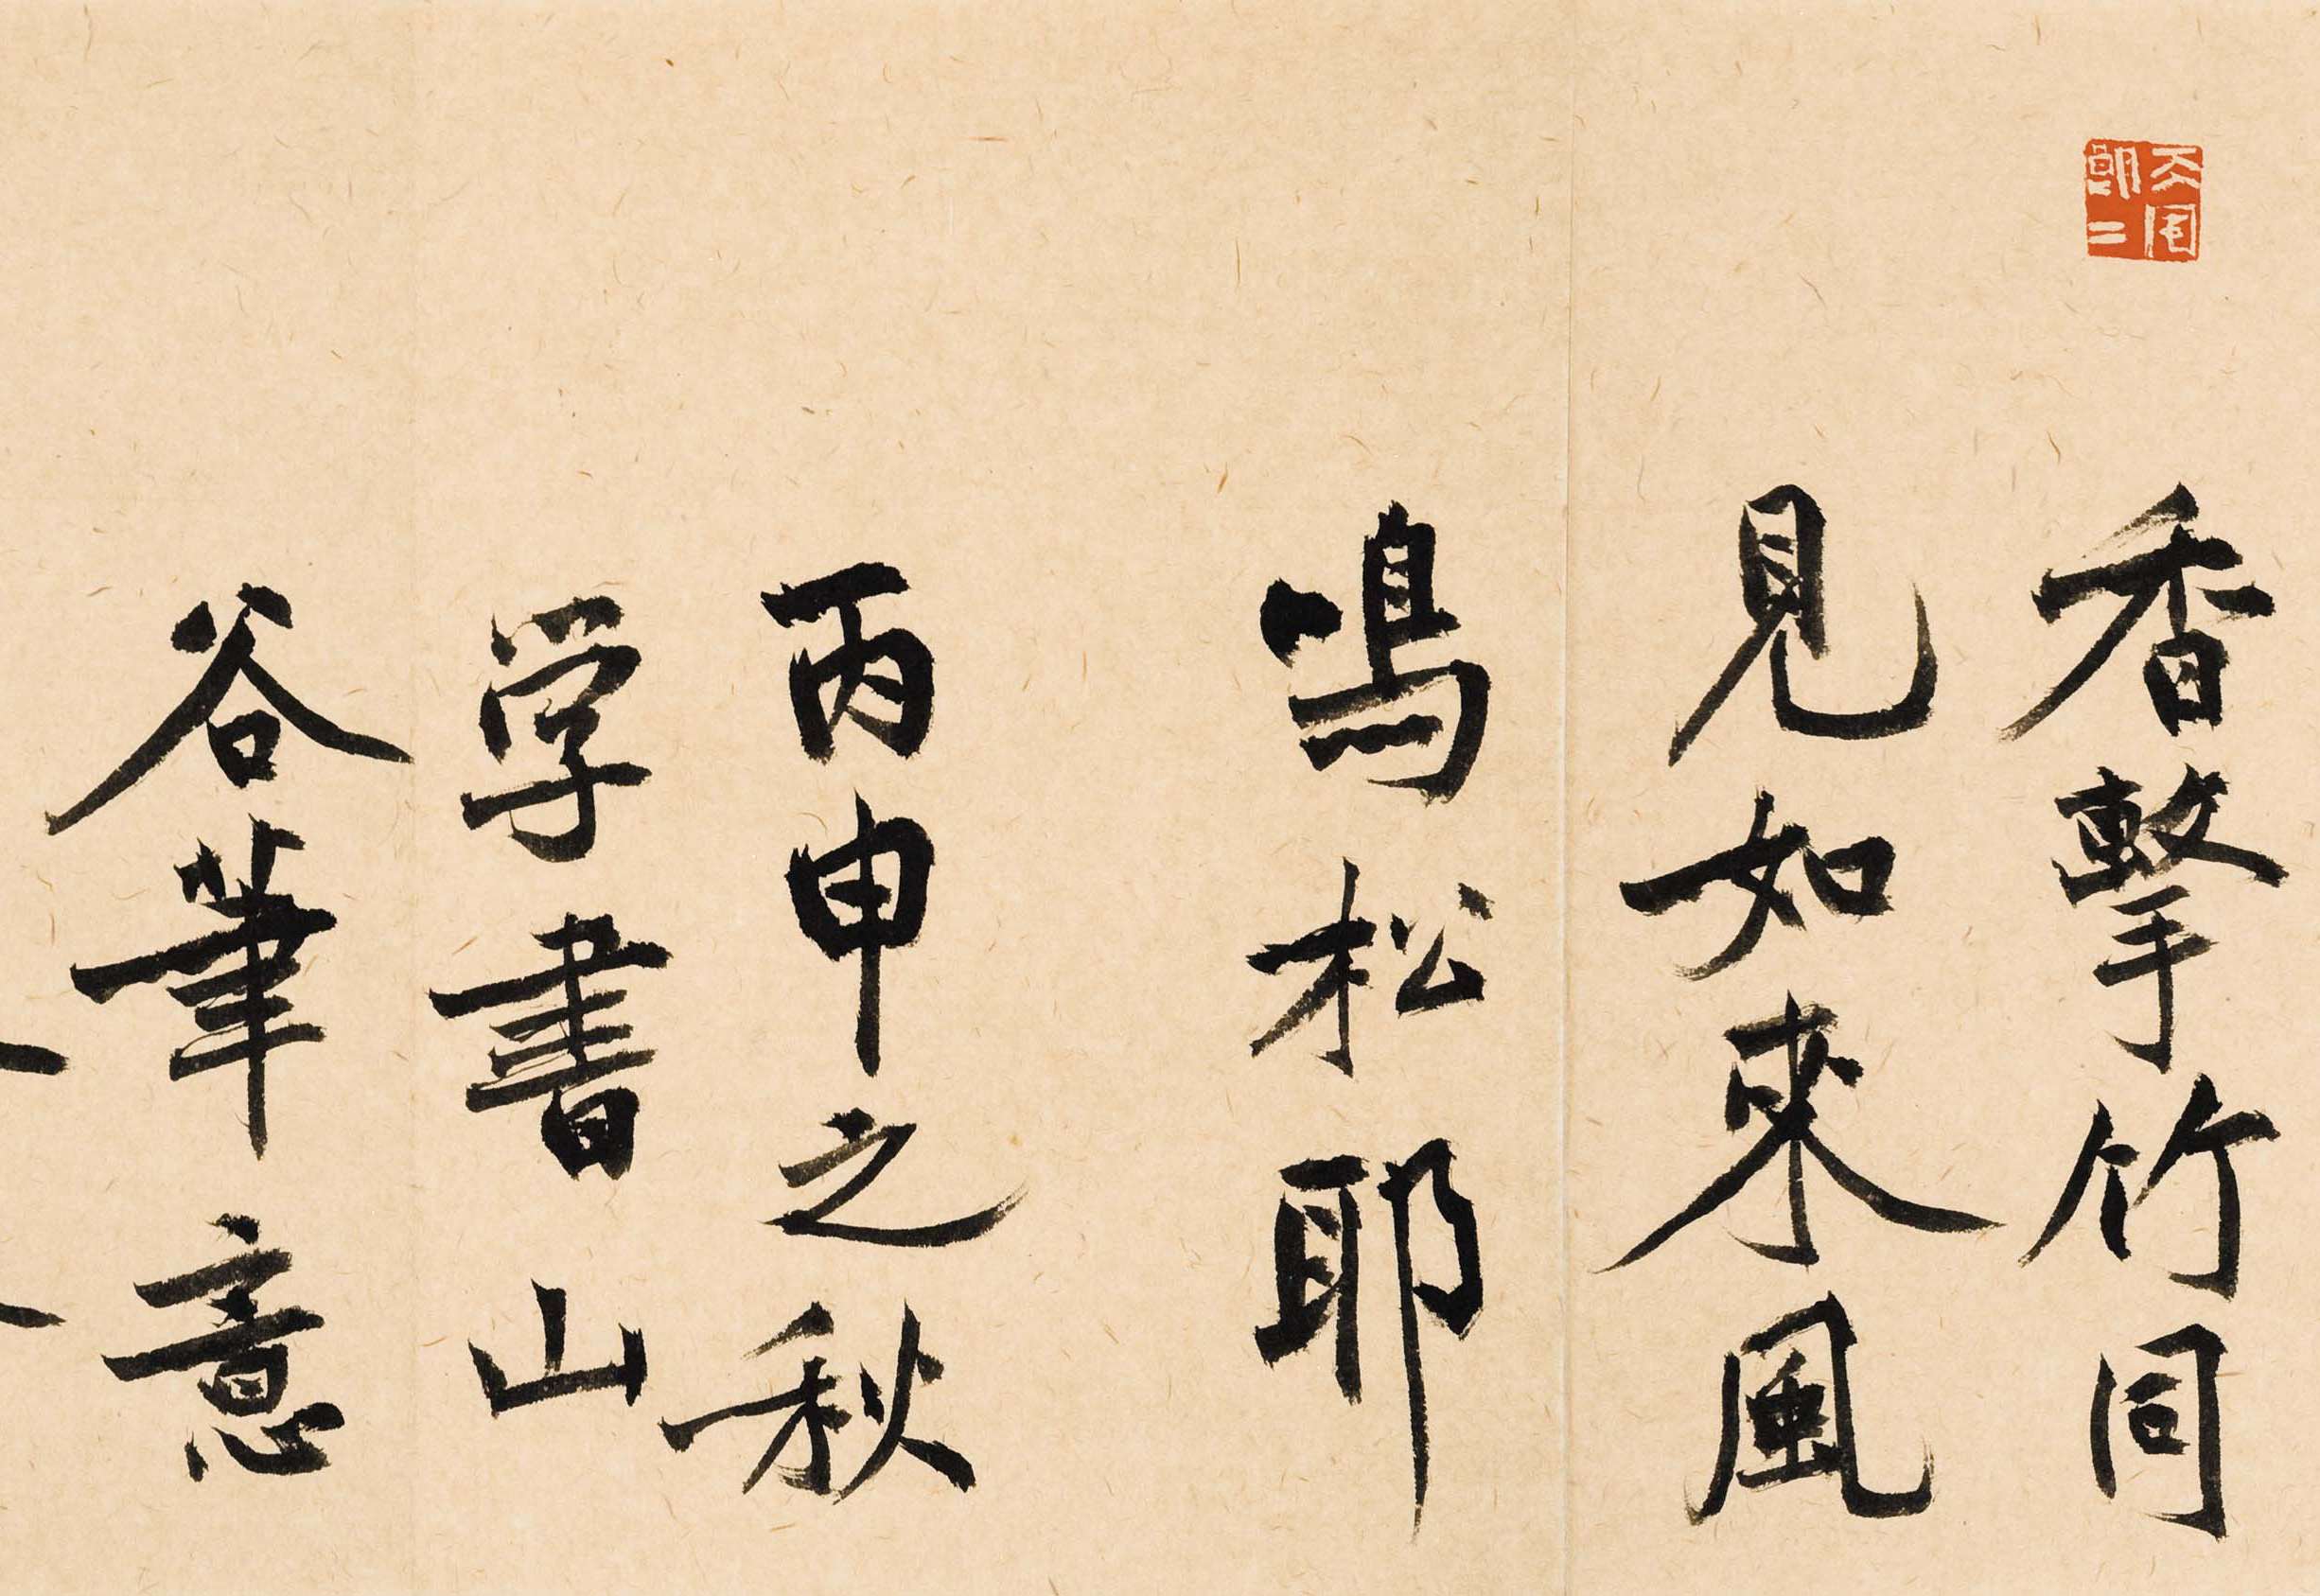 香擊竹同
見如來風
鳴松耶
丙申之秋
学書山
谷筆意